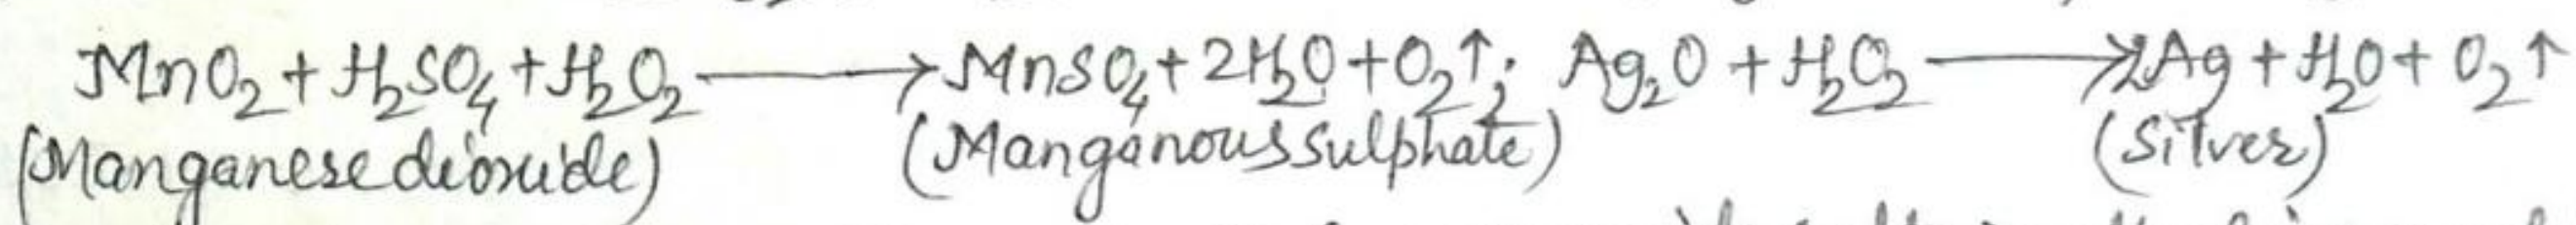 MnO₂ + H₂SO₄ + H₂O₂ ⟶ MnSO₄ + 2H₂O + O₂↑; Ag₂O + H₂O₂ ⟶ 2Ag + H₂O + O₂↑
(Manganese dioxide) (Manganous sulphate) (Silver)